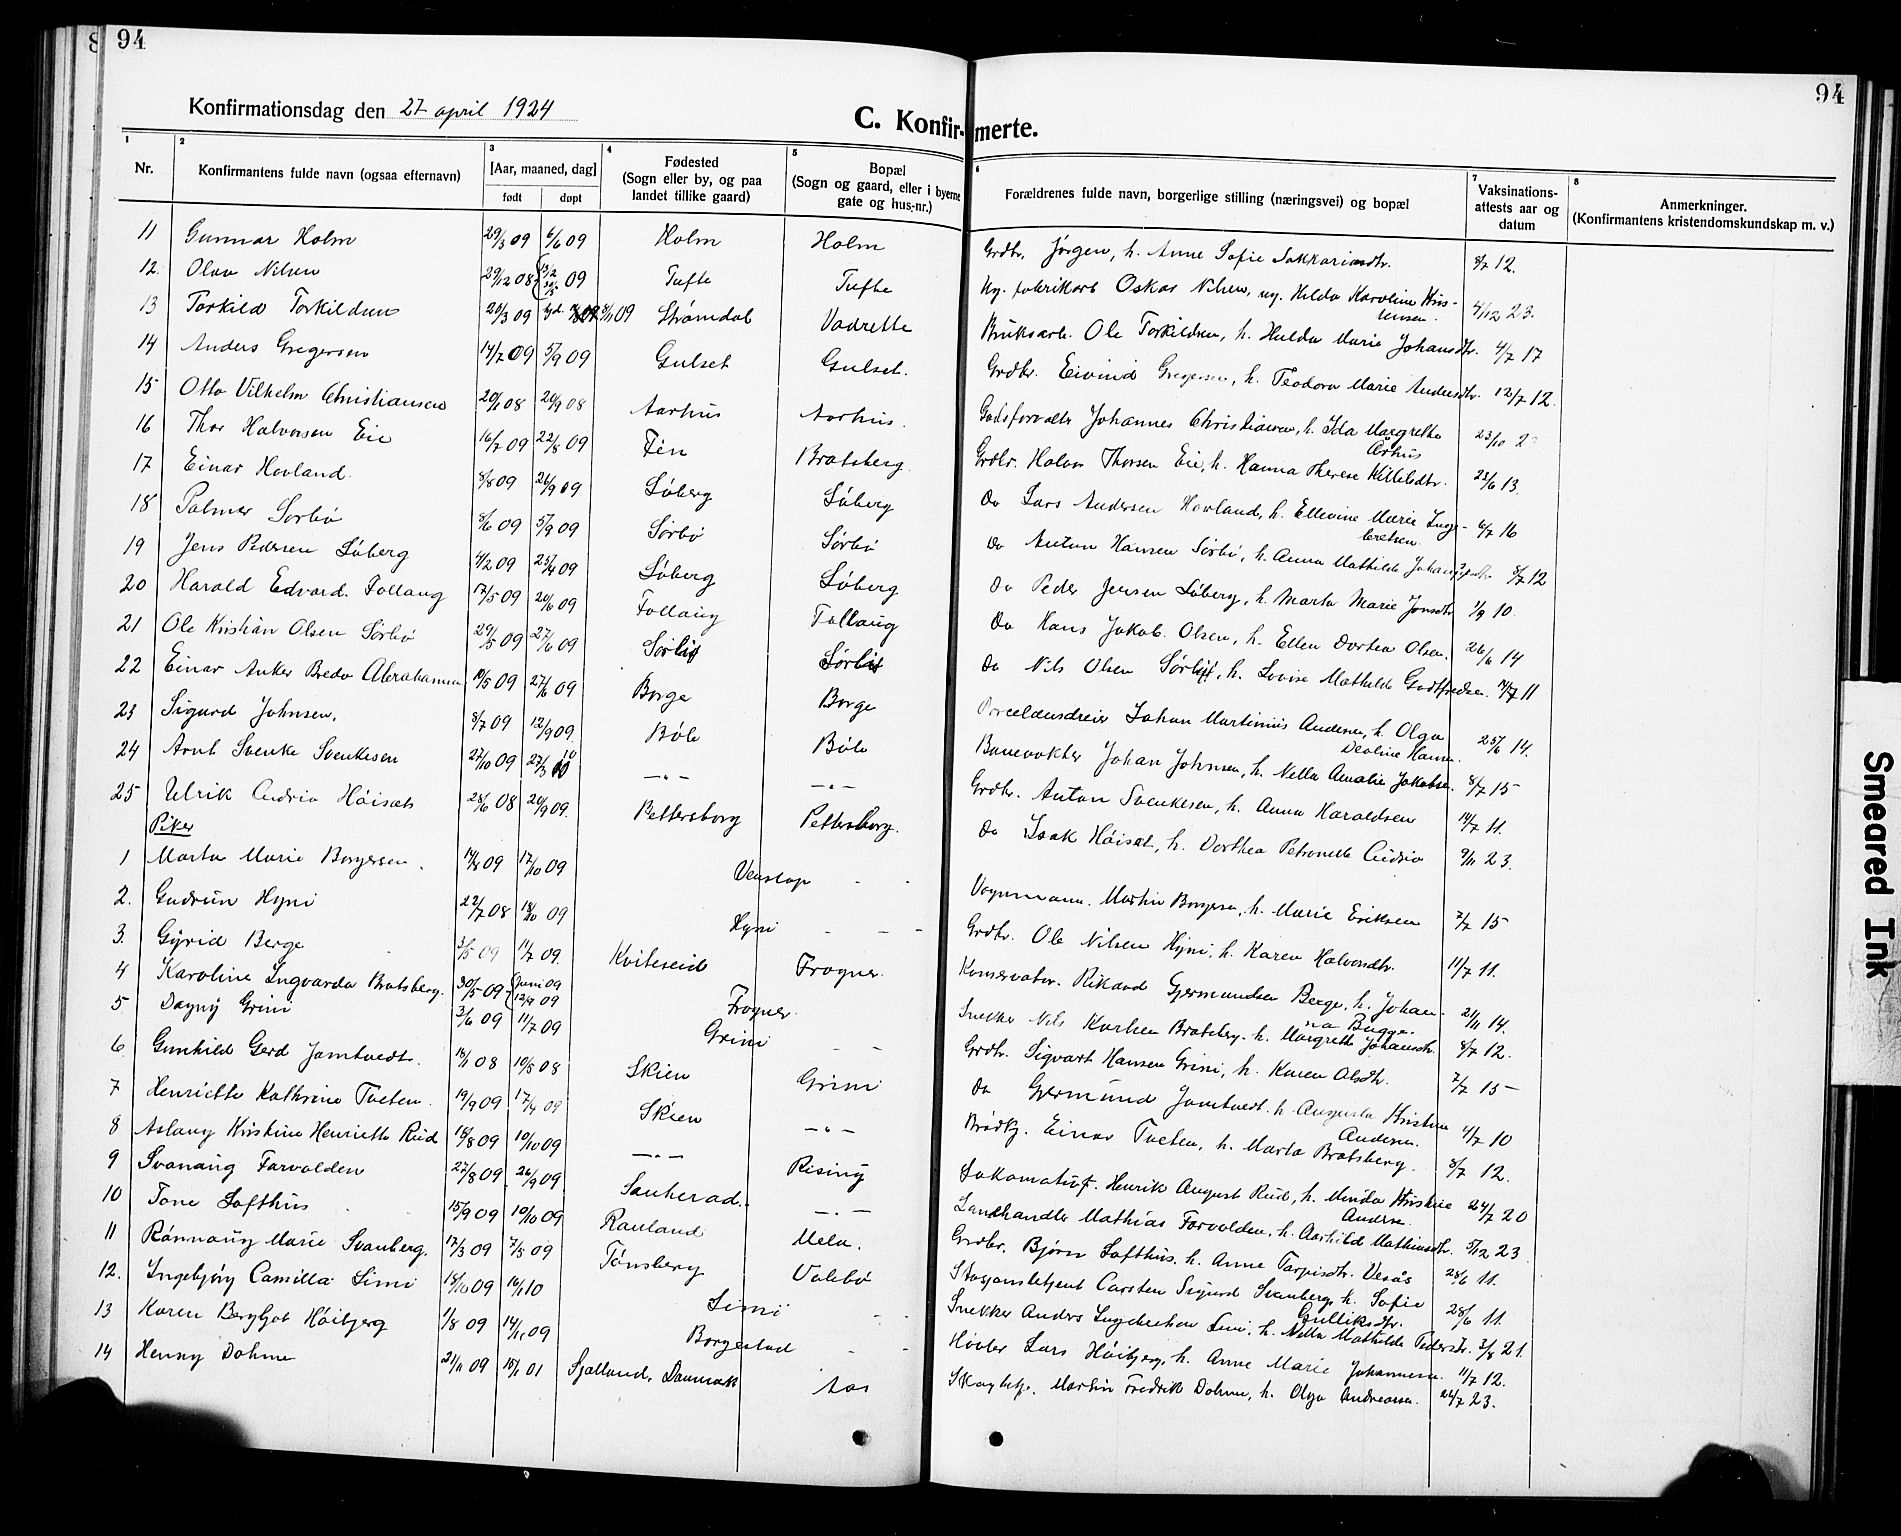 94
94
Konfirmationsdag den 27 april 1924
C. Konfirmerte.
1 Nr.
2 Konfirmantens fulde navn (ogsaa efternavn)
3 [Aar, maaned, dag] født døpt
4 Fødested (Sogn eller by, og paa landet tillike gaard)
5 Bopæl (Sogn og gaard, eller i byerne gate og hus-nr.)
6 Forældrenes fulde navn, borgerlige stilling (næringsvei) og bopæl
7 Vaksinations-attests aar og datum
8 Anmerkninger. (Konfirmantens kristendomskundskap m. v.)
11 Gunnar Holm 29/3 09 6/6 09 Holm Holm Grdbr. Jørgen, h. Anne Sofie 8/7 12.
12. Olav Nilsen 29/12 08 09 Tufte Tufte Ug. fabrikarb Oskar Nilsen, ug. Hilda Karoline Kris-
tensen. 4/12 23.
13 Torkild Torkildsen 20/3 09 8/11 09 Strømdal Vadrette Bruksarb. Ole Torkildsen, h. Hulda Marie Johansdtr. 4/7 17
14 Anders Gregersen 14/7 09 5/9 09 Gulset Gulset. Grdbr. Eivind Gregersen, h. Teodora Marie Andersdtr. 12/7 12.
15 Otto Vilhelm Christiansen 20/1 08 20/9 08 Aarhus Aarhus. Godsforvalter Johannes Christiansen, h. Ida Margrethe
Århus 23/10
16 Thor Halvorsen Eie 16/7 09 22/8 09 Fén Bratsberg. Grdbr. Halvor Thorsen Eie, h. Hanna Therese Killebdtr. 23/6 13.
17 Einar Hovland. 8/8 09 26/9 09 Löberg Löberg Do Lars Andersen Hovland, h. Ellevine Marie Inge-
bretsen 6/7 16
18 Palmer Sørbö 8/6 09 5/9 09 Sörbö Sörbö Do Anton Hansen Sörbö, h. Anna Mathilde 8/7 12
19 Jens Pedersen Löberg 4/2 09 25/4 09 Löberg Löberg Do Peder Jensen Löberg, h. Marta Marie Jonsdtr. 1/9 10.
20 Harald Edvard. Follaug 17/5 09 20/6 09 Follaug Follaug Do Hans Jakob. Olsen, h. Ellen Dortea Olsen. 26/6 14
21 Ole Kristian Olsen Sörbö 29/5 09 27/6 09 Do Nils Olsen h. Lovise Mathilde Godtfredsen. 11
22 Einar Anker Bredo Abrahamsen 09 27/6 09 Borge Borge Porcelænsdreier Johan Martinius Andersen, h. Olga
Hansen. 25/6 14.
23 Sigurd Johnsen, 8/7 09 12/9 09. Böle Böle Banevokter Johan Johnsen, h. Nella Amalie Jakobsen. 8/7 15
24 Arnt Svenke Svenkesen 27/10 09 27/3 10 —"— —"— Grdbr. Anton Svenkesen, h. Anna Haraldsen 14/7 11.
25 Ulrik Höisæt 28/6 08 20/9 09. Pettersborg Pettersborg. Do Isak Höisæt, h. Dorthea Petronelle 9/11 23.
Piker
1 Marta Marie Borgersen. 09 17/10 09 Venstøp - - Vognmann. Martin Borgersen, h. Marie Eriksen 7/7 15
2. Gudrun Hyni 22/7 08 09 Hyni - - - Grdbr. Ole Nilsen Hyni, h. Karen Halvorsdtr. 11/7 11.
3. Gyrid Berge 3/5 09 11/7 09. Kviteseid Frogner. Konservator. Rikard Gjermundsen Berge, h. Johan-
na Bugge. 21/11 14.
4 Karoline Ingvarda Bratsberg. 30/5 09 juni 09 12/9 09 Frogner. Snekker Nils Karlsen Bratsberg. h. Margrethe Johansdtr. 8/7 12.
5 Dagny Grini 3/6 09 11/7 09 Grini - - Grdbr. Sigvart Hansen Grini, h. Karen Olsdtr. 7/7 15
6. Gunhild Gerd Jamtvedt. 18/1 08 10/5 08 Skien Grini Do Gjermund Jamtvedt. h. Augusta Kristine
Andersen. 4/7 10
7 Henriette Kathrine Tveten. 19/9 09 09 Skien —"— Brødkj. Einar Tveten, h. Marta Bratsberg. 8/7 12.
8 Aslaug Kristine Henriette Rud 18/8 09 10/10 09 —"— Rising Lokomotivf. Henrik August Rud, h. Minda Kristine
Andersen. 24/7 20
9 Svanaug Farvolden 27/8 09. 26/9 09 Sauherad. —"— Landhandler Mathias Farvolden, h. Aashild Mathiasdtr. 5/12 23.
10 Tone Lofthus 15/9 09 10/10 09 Rauland Mela. Grdbr. Bjørn Lofthus, h. Anne Tarjeisdtr. Vesås 28/6 11.
11 Rönnaug Marie Svanberg. 17/3 09 7/5 09 Tønsberg Valebö Stasjonsbetjent Carsten Sigurd Svanberg, h. Sofie
Gulliksdtr. 28/6 11.
12. Ingebjörg Camilla Simi 15/10 09 16/1 10 Simi - Snekker Anders Ingebrethsen Simi, h. Nella Mathilde Pedersdtr. 3/8 21.
13 Karen Bergljot Höibjerg 1/8 09 14/11 09 Borgestad - - Høvler Lars Höibjerg, h. Anne Marie Johannesen 11/7 12.
14 Henny Dohme 21/11 09 01 Sjælland, Danmark Aas Martin Fredrik Dohme, h. Olga Andreassen. 24/7 23.
Smeared Ink